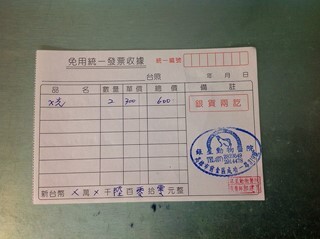 免用統一發票收據 統一編號
台照 年 月 日
品名 數量 單價 總價 備註
X光 2 300 600
銀貨兩訖
動物醫院
新台幣 X 萬 X 千 陸 百 零 拾 零 元整